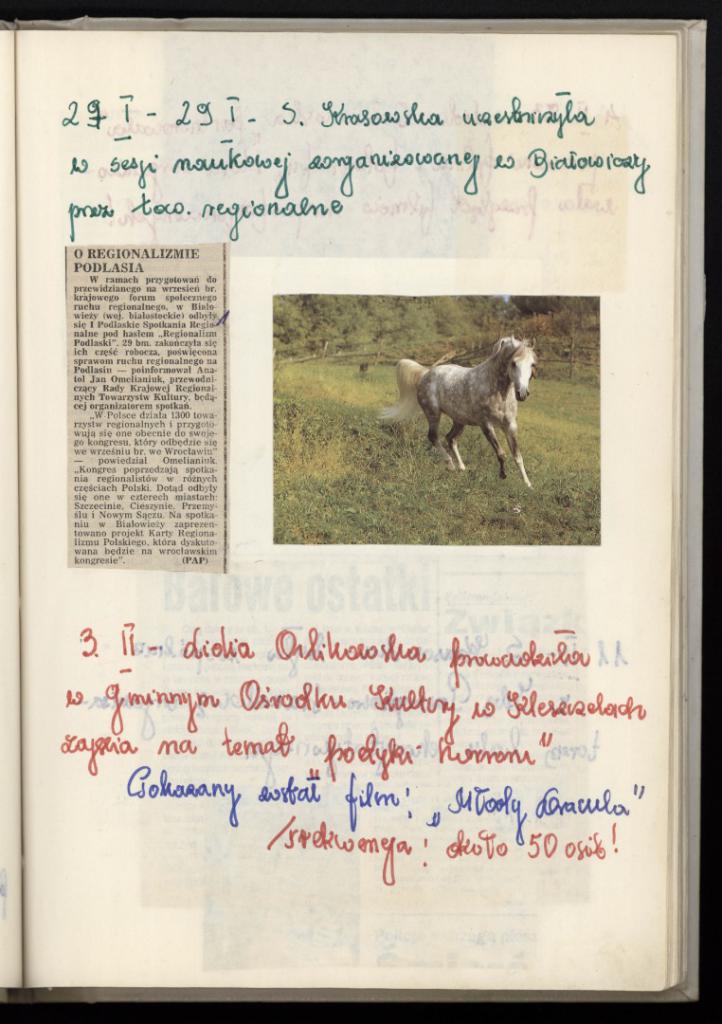 27 I - 29 I - S. Krasowska uczestniczyła
w sesji naukowej zorganizowanej w Białowieży
przez tow. regionalne
O REGIONALIZMIE
PODLASIA
W ramach przygotowań do
przewidzianego na wrzesień br.
krajowego forum społecznego
ruchu regionalnego, w Biało-
wieży (woj. białostockie) odbyły
się I Podlaskie Spotkania Regio-
nalne pod hasłem „Regionalizm
Podlaski". 29 bm. zakończyła się
ich część robocza, poświęcona
sprawom ruchu regionalnego na
Podlasiu — poinformował Ana-
tol Jan Omelianiuk, przewodni-
czący Rady Krajowej Regional-
nych Towarzystw Kultury, będą-
cej organizatorem spotkań.
„W Polsce działa 1300 towa-
rzystw regionalnych i przygoto-
wują się one obecnie do swoje-
go kongresu, który odbędzie się
we wrześniu br. we Wrocławiu"
— powiedział Omelianiuk.
„Kongres poprzedzają spotka-
nia regionalistów w różnych
częściach Polski. Dotąd odbyły
się one w czterech miastach:
Szczecinie, Cieszynie, Przemy-
ślu i Nowym Sączu. Na spotka-
niu w Białowieży zaprezen-
towano projekt Karty Regiona-
lizmu Polskiego, która dyskuto-
wana będzie na wrocławskim
kongresie". (PAP)
3. II - Lidia Orlikowska prowadziła
w Gminnym Ośrodku Kultury w Kleszczelach
zajęcia na temat "poetyki horroru"
Pokazany został film: „Młody Dracula"
/frekwencja: około 50 osób!